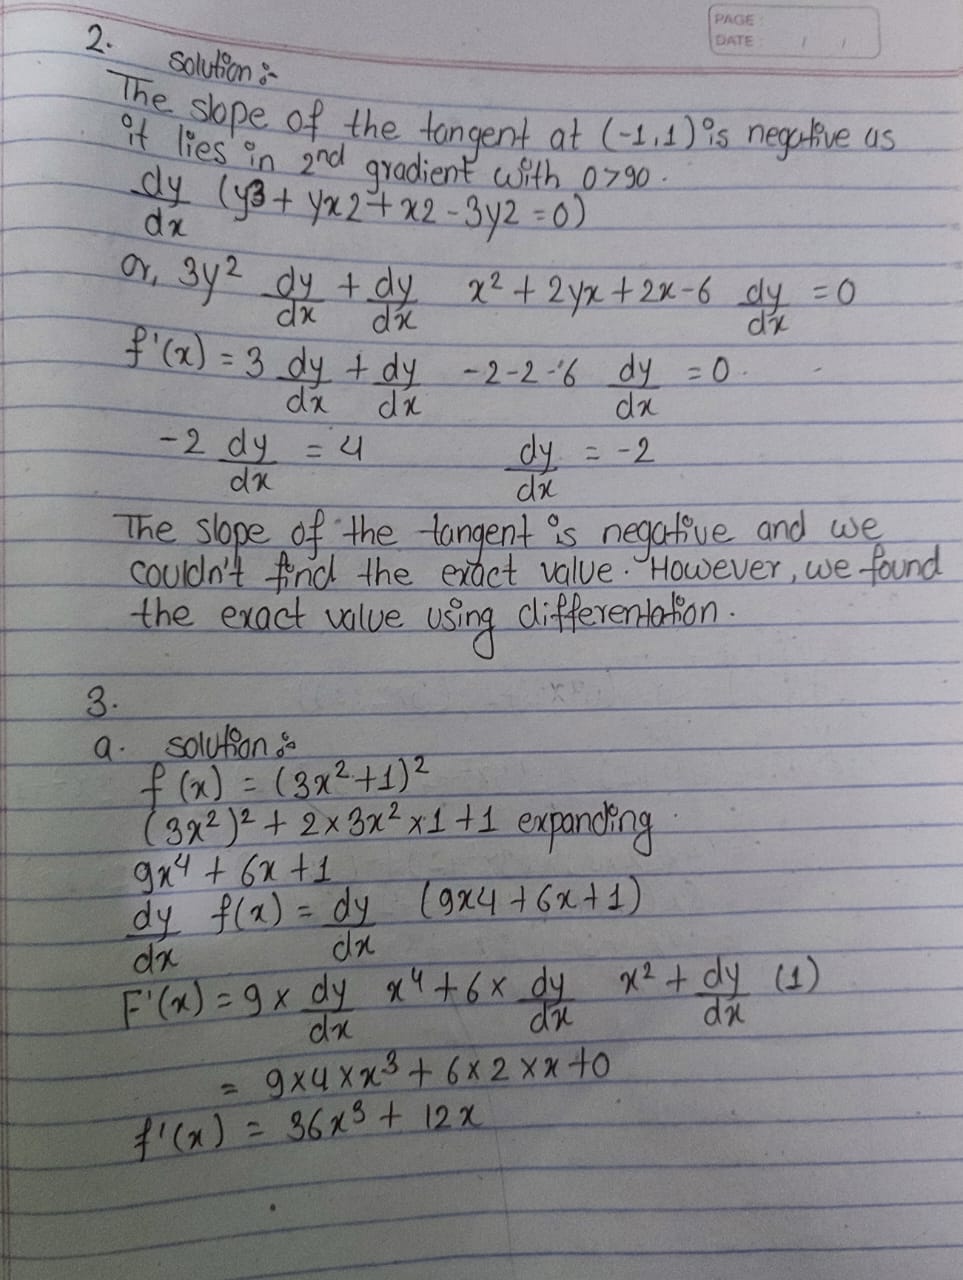 PAGE :
DATE : / /
2. solution :-
The slope of the tangent at (-1,1) is negative as
it lies in 2nd gradient with 0>90.
dy/dx (y3 + yx2 + x2 - 3y2 = 0)
or, 3y² dy/dx + dy/dx x² + 2yx + 2x - 6 dy/dx = 0
f'(x) = 3 dy/dx + dy/dx - 2 - 2 - 6 dy/dx = 0.
-2 dy/dx = 4 dy/dx = -2
The slope of the tangent is negative and we
couldn't find the exact value. However, we found
the exact value using differentation.
3.
a. solution :-
f(x) = (3x²+1)²
(3x²)² + 2×3x²×1+1 expanding
9x⁴ + 6x + 1
dy/dx f(x) = dy/dx (9x4 + 6x + 1)
F'(x) = 9 × dy/dx x⁴ + 6 × dy/dx x² + dy/dx (1)
= 9×4×x³ + 6×2×x+0
f'(x) = 36x³ + 12x